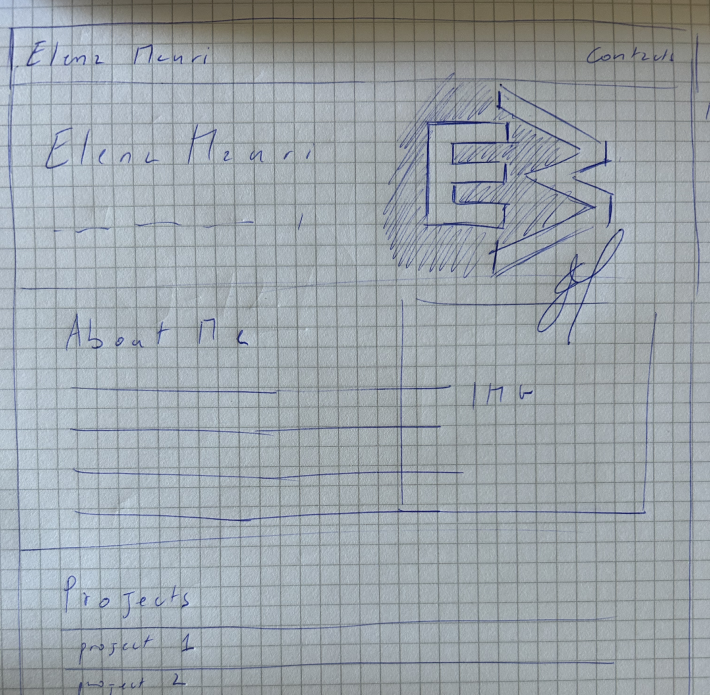 Elena Mauri
Contacts
Elena Mauri
About Me
IMG
Projects
project 1
project 2